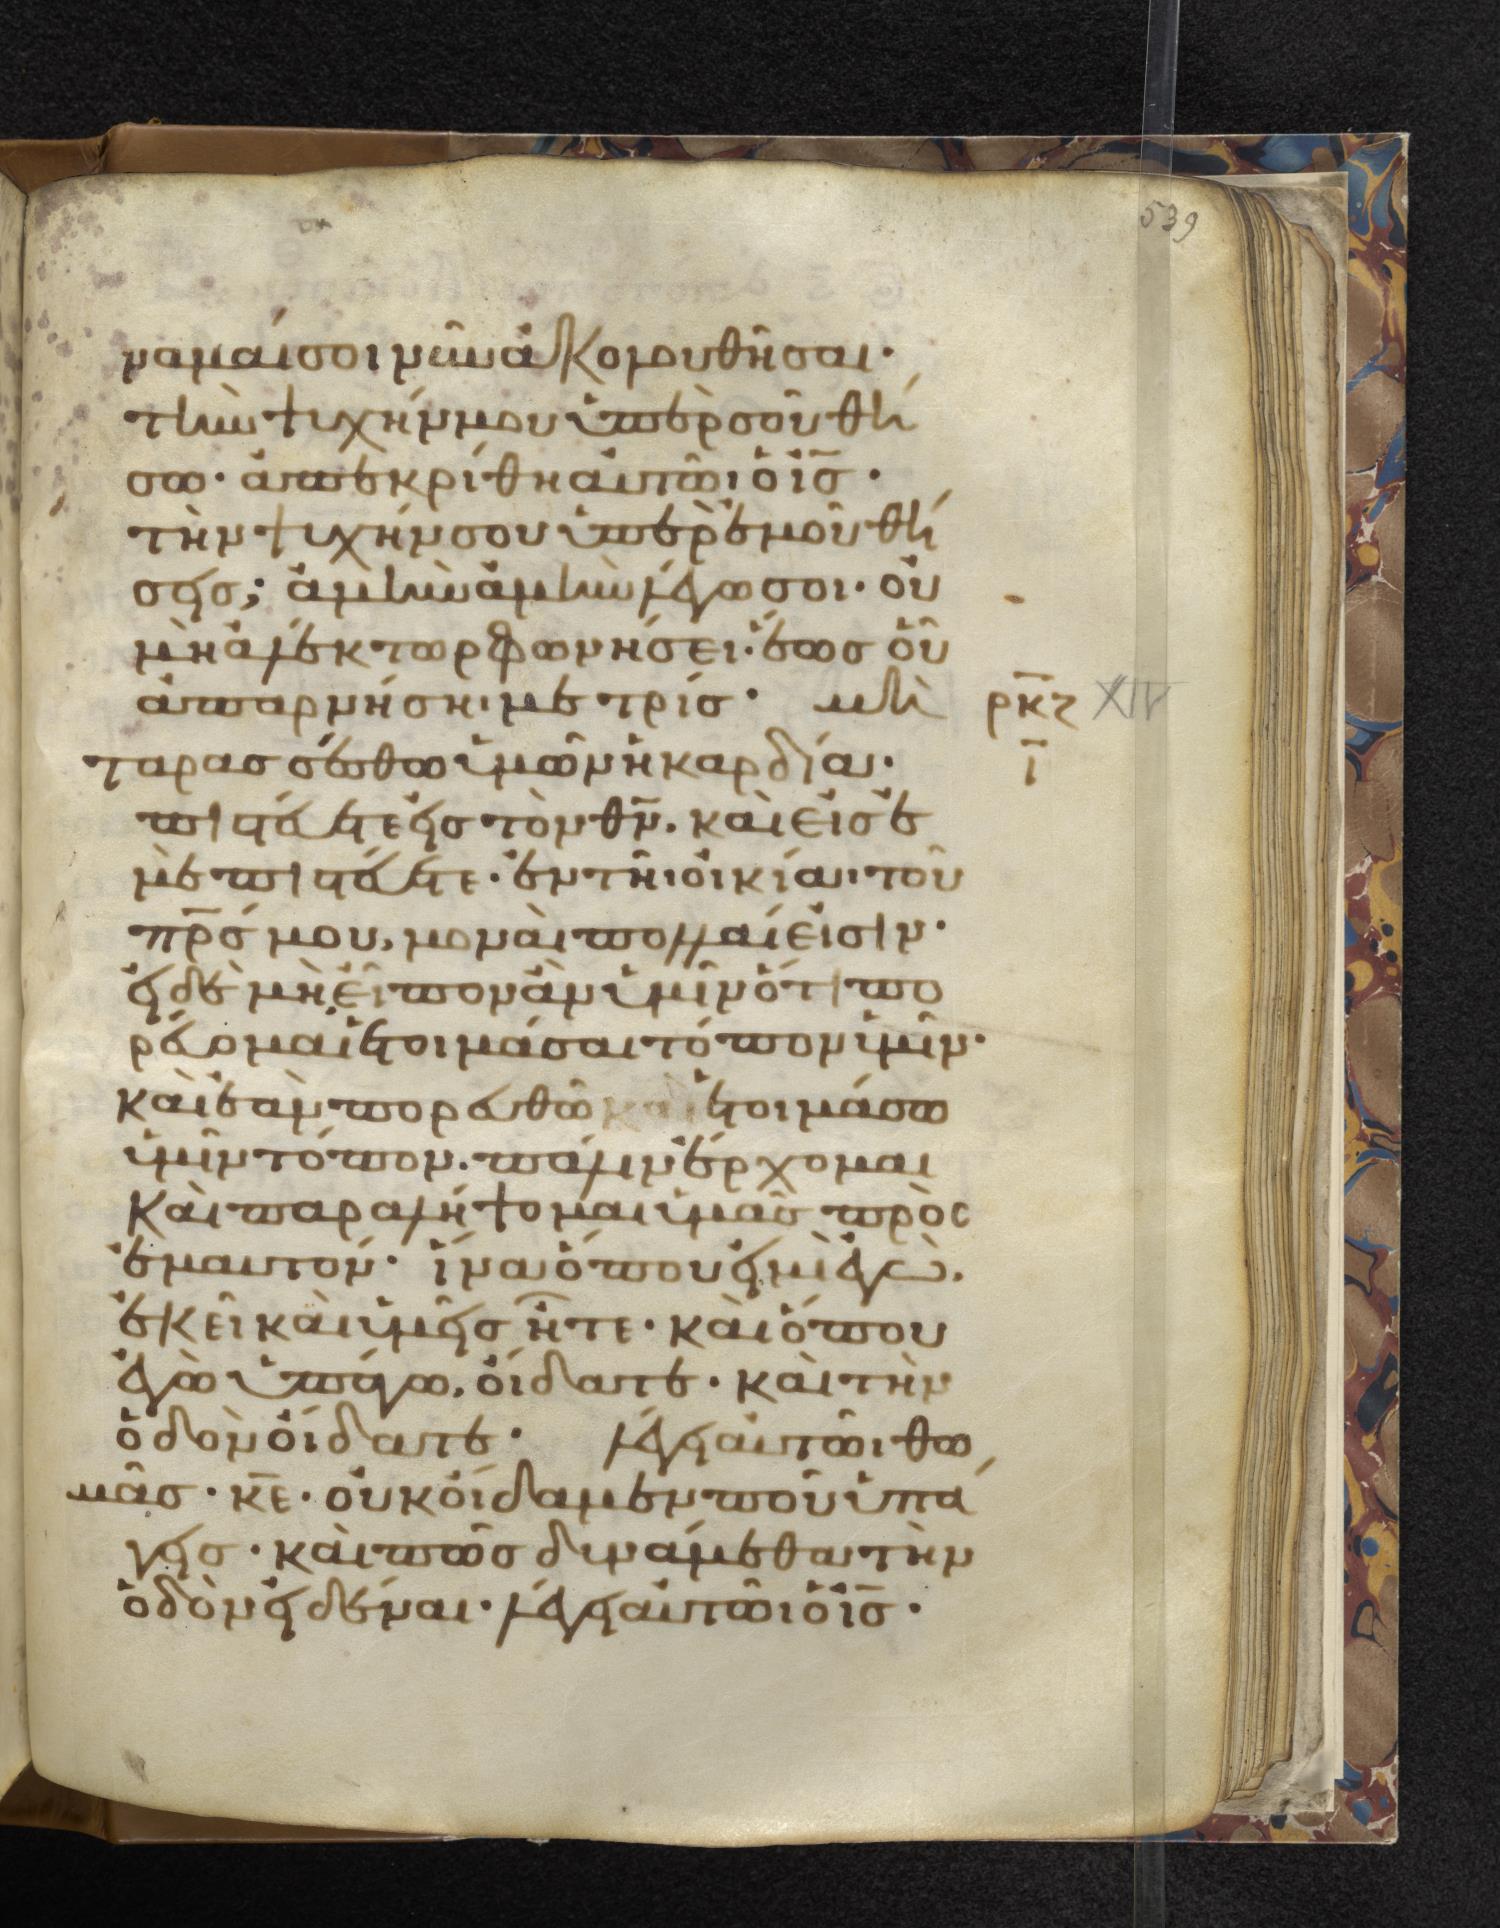 539
ναμαί σοι νῦν ἀκολουθῆσαι·
τὴν ψυχήν μου ὑπὲρ σοῦ θή
σω· ἀπεκρίθη αὐτῶι ὁ ῑσ̄·
τὴν ψυχήν σου ὑπὲρ ἐμοῦ θή
σεις; ἀμὴν ἀμὴν λέγω σοι· οὐ
μὴ ἀλέκτωρ φωνήσει· ἕως οὗ
ἀπαρνήσηι με τρίς· μὴ ρκζ XIV
ταρασσέσθω ὑμῶν ἡ καρδία· ῑ
πιστεύετε εἰς τὸν θ̄ν̄. καὶ εἰς ἐ
μὲ πιστεύετε· ἐν τῆι οἰκίαι τοῦ
π̄ρ̄σ̄ μου, μοναὶ πολλαί εἰσιν·
εἰ δὲ μὴ εἶπον ἂν ὑμῖν ὅτι πο
ρεύομαι ἑτοιμάσαι τόπον ὑμῖν·
καὶ ἐὰν πορευθῶ καὶ ἑτοιμάσω
ὑμῖν τόπον. πάλιν ἔρχομαι
καὶ παραλήψομαι ὑμᾶς πρὸς
ἐμαυτόν· ἵνα ὅπου εἰμὶ ἐγὼ.
ἐκεῖ καὶ ὑμεῖς ἦτε· καὶ ὅπου
ἐγὼ ὑπάγω, οἴδατε· καὶ τὴν
ὁδὸν οἴδατε· λέγει αὐτῶι θω
μᾶς· κ̄ε̄· οὐκ οἴδαμεν ποῦ ὑπά
γεις· καὶ πῶς δυνάμεθα τὴν
ὁδὸν εἰδέναι· λέγει αὐτῶι ὁ ῑσ̄·